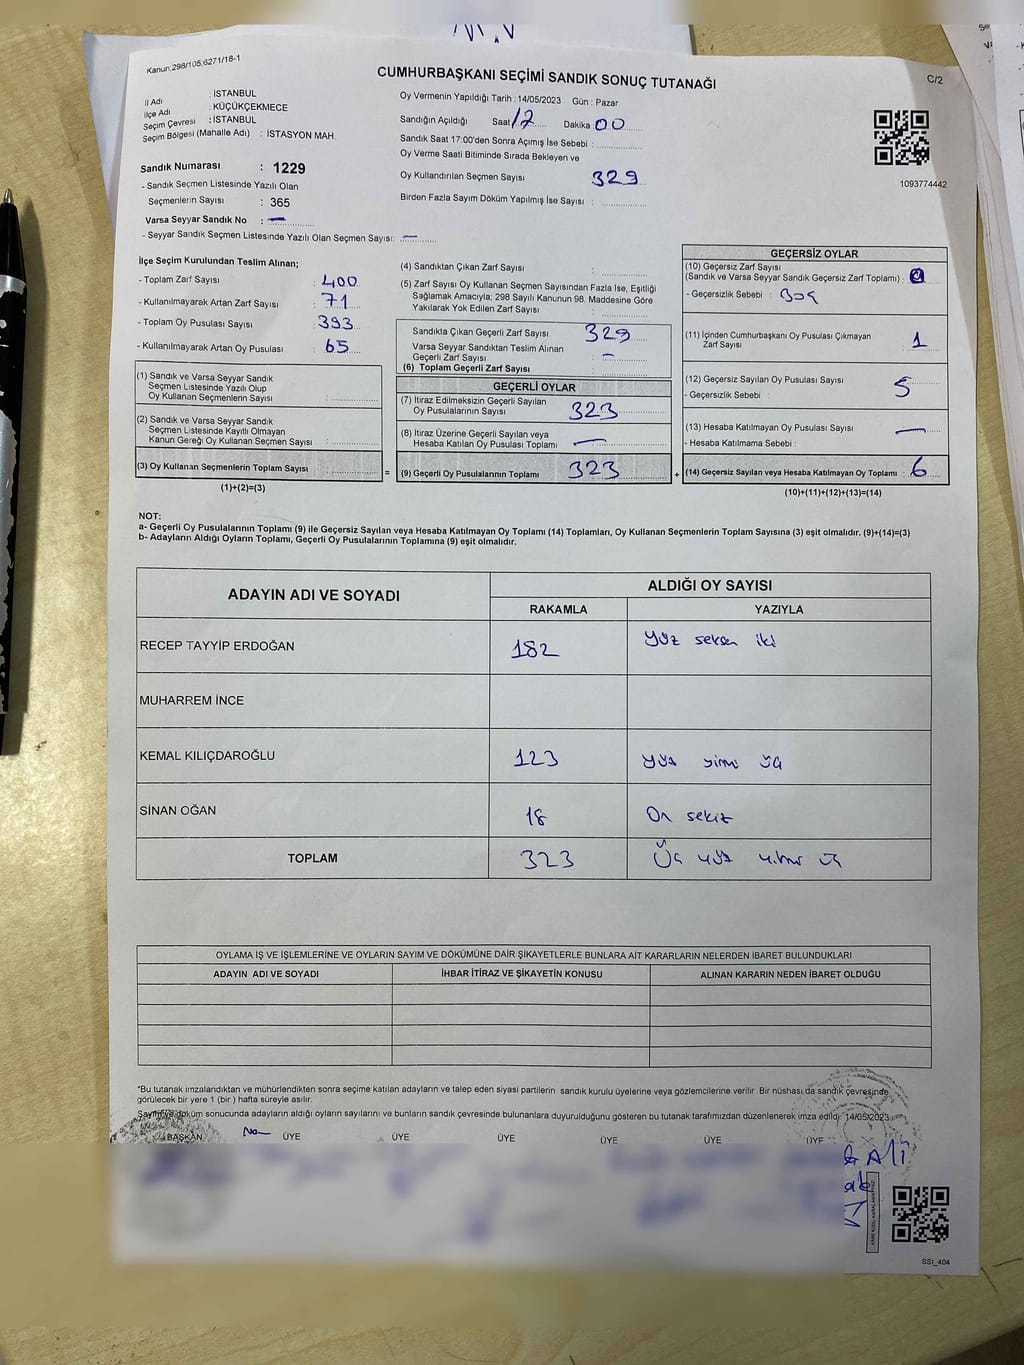 Kanun:298/105,6271/18-1
CUMHURBAŞKANI SEÇİMİ SANDIK SONUÇ TUTANAĞI
C/2
İl Adı : İSTANBUL
İlçe Adı : KÜÇÜKÇEKMECE
Seçim Çevresi : İSTANBUL
Seçim Bölgesi (Mahalle Adı) : İSTASYON MAH.
Sandık Numarası : 1229
- Sandık Seçmen Listesinde Yazılı Olan
Seçmenlerin Sayısı : 365
Varsa Seyyar Sandık No : —
- Seyyar Sandık Seçmen Listesinde Yazılı Olan Seçmen Sayısı: —
Oy Vermenin Yapıldığı Tarih : 14/05/2023 Gün : Pazar
Sandığın Açıldığı Saat 17 Dakika 00
Sandık Saat 17:00'den Sonra Açımış İse Sebebi :
Oy Verme Saati Bitiminde Sırada Bekleyen ve
Oy Kullandırılan Seçmen Sayısı 329
Birden Fazla Sayım Döküm Yapılmış İse Sayısı :
1093774442
İlçe Seçim Kurulundan Teslim Alınan;
- Toplam Zarf Sayısı : 400
- Kullanılmayarak Artan Zarf Sayısı : 71
- Toplam Oy Pusulası Sayısı : 393
- Kullanılmayarak Artan Oy Pusulası : 65
(1) Sandık ve Varsa Seyyar Sandık
Seçmen Listesinde Yazılı Olup
Oy Kullanan Seçmenlerin Sayısı :
(2) Sandık ve Varsa Seyyar Sandık
Seçmen Listesinde Kayıtlı Olmayan
Kanun Gereği Oy Kullanan Seçmen Sayısı :
(3) Oy Kullanan Seçmenlerin Toplam Sayısı :
(1)+(2)=(3)
=
(4) Sandıktan Çıkan Zarf Sayısı :
(5) Zarf Sayısı Oy Kullanan Seçmen Sayısından Fazla İse, Eşitliği
Sağlamak Amacıyla; 298 Sayılı Kanunun 98. Maddesine Göre
Yakılarak Yok Edilen Zarf Sayısı :
Sandıkta Çıkan Geçerli Zarf Sayısı : 329
Varsa Seyyar Sandıktan Teslim Alınan
Geçerli Zarf Sayısı : —
(6) Toplam Geçerli Zarf Sayısı :
GEÇERLİ OYLAR
(7) İtiraz Edilmeksizin Geçerli Sayılan
Oy Pusulalarının Sayısı : 323
(8) İtiraz Üzerine Geçerli Sayılan veya
Hesaba Katılan Oy Pusulası Toplamı : —
(9) Geçerli Oy Pusulalarının Toplamı : 323
+
GEÇERSİZ OYLAR
(10) Geçersiz Zarf Sayısı
(Sandık ve Varsa Seyyar Sandık Geçersiz Zarf Toplamı) :
- Geçersizlik Sebebi : Boş
(11) İçinden Cumhurbaşkanı Oy Pusulası Çıkmayan
Zarf Sayısı : 1
(12) Geçersiz Sayılan Oy Pusulası Sayısı : 5
- Geçersizlik Sebebi :
(13) Hesaba Katılmayan Oy Pusulası Sayısı : —
- Hesaba Katılmama Sebebi :
(14) Geçersiz Sayılan veya Hesaba Katılmayan Oy Toplamı : 6
(10)+(11)+(12)+(13)=(14)
NOT:
a- Geçerli Oy Pusulalarının Toplamı (9) ile Geçersiz Sayılan veya Hesaba Katılmayan Oy Toplamı (14) Toplamları, Oy Kullanan Seçmenlerin Toplam Sayısına (3) eşit olmalıdır. (9)+(14)=(3)
b- Adayların Aldığı Oyların Toplamı, Geçerli Oy Pusulalarının Toplamına (9) eşit olmalıdır.
ADAYIN ADI VE SOYADI
ALDIĞI OY SAYISI
RAKAMLA YAZIYLA
RECEP TAYYİP ERDOĞAN 182 Yüz seksen iki
MUHARREM İNCE
KEMAL KILIÇDAROĞLU 123 yüz yirmi üç
SİNAN OĞAN 18 On sekiz
TOPLAM 323 Üç yüz yirmi üç
OYLAMA İŞ VE İŞLEMLERİNE VE OYLARIN SAYIM VE DÖKÜMÜNE DAİR ŞİKAYETLERLE BUNLARA AİT KARARLARIN NELERDEN İBARET BULUNDUKLARI
ADAYIN ADI VE SOYADI İHBAR İTİRAZ VE ŞİKAYETİN KONUSU ALINAN KARARIN NEDEN İBARET OLDUĞU
*Bu tutanak imzalandıktan ve mühürlendikten sonra seçime katılan adayların ve talep eden siyasi partilerin sandık kurulu üyelerine veya gözlemcilerine verilir. Bir nüshası da sandık çevresinde
görülecek bir yere 1 (bir ) hafta süreyle asılır.
Sayım ve döküm sonucunda adayların aldığı oyların sayılarını ve bunların sandık çevresinde bulunanlara duyurulduğunu gösteren bu tutanak tarafımızdan düzenlenerek imza edildi. 14/05/2023
BAŞKAN ÜYE ÜYE ÜYE ÜYE ÜYE ÜYE
ALİ
SSI_404